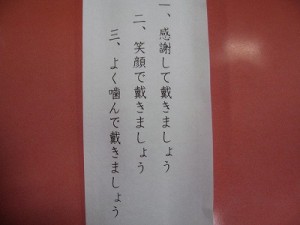 一、感謝して戴きましょう
二、笑顔で戴きましょう
三、よく噛んで戴きましょう